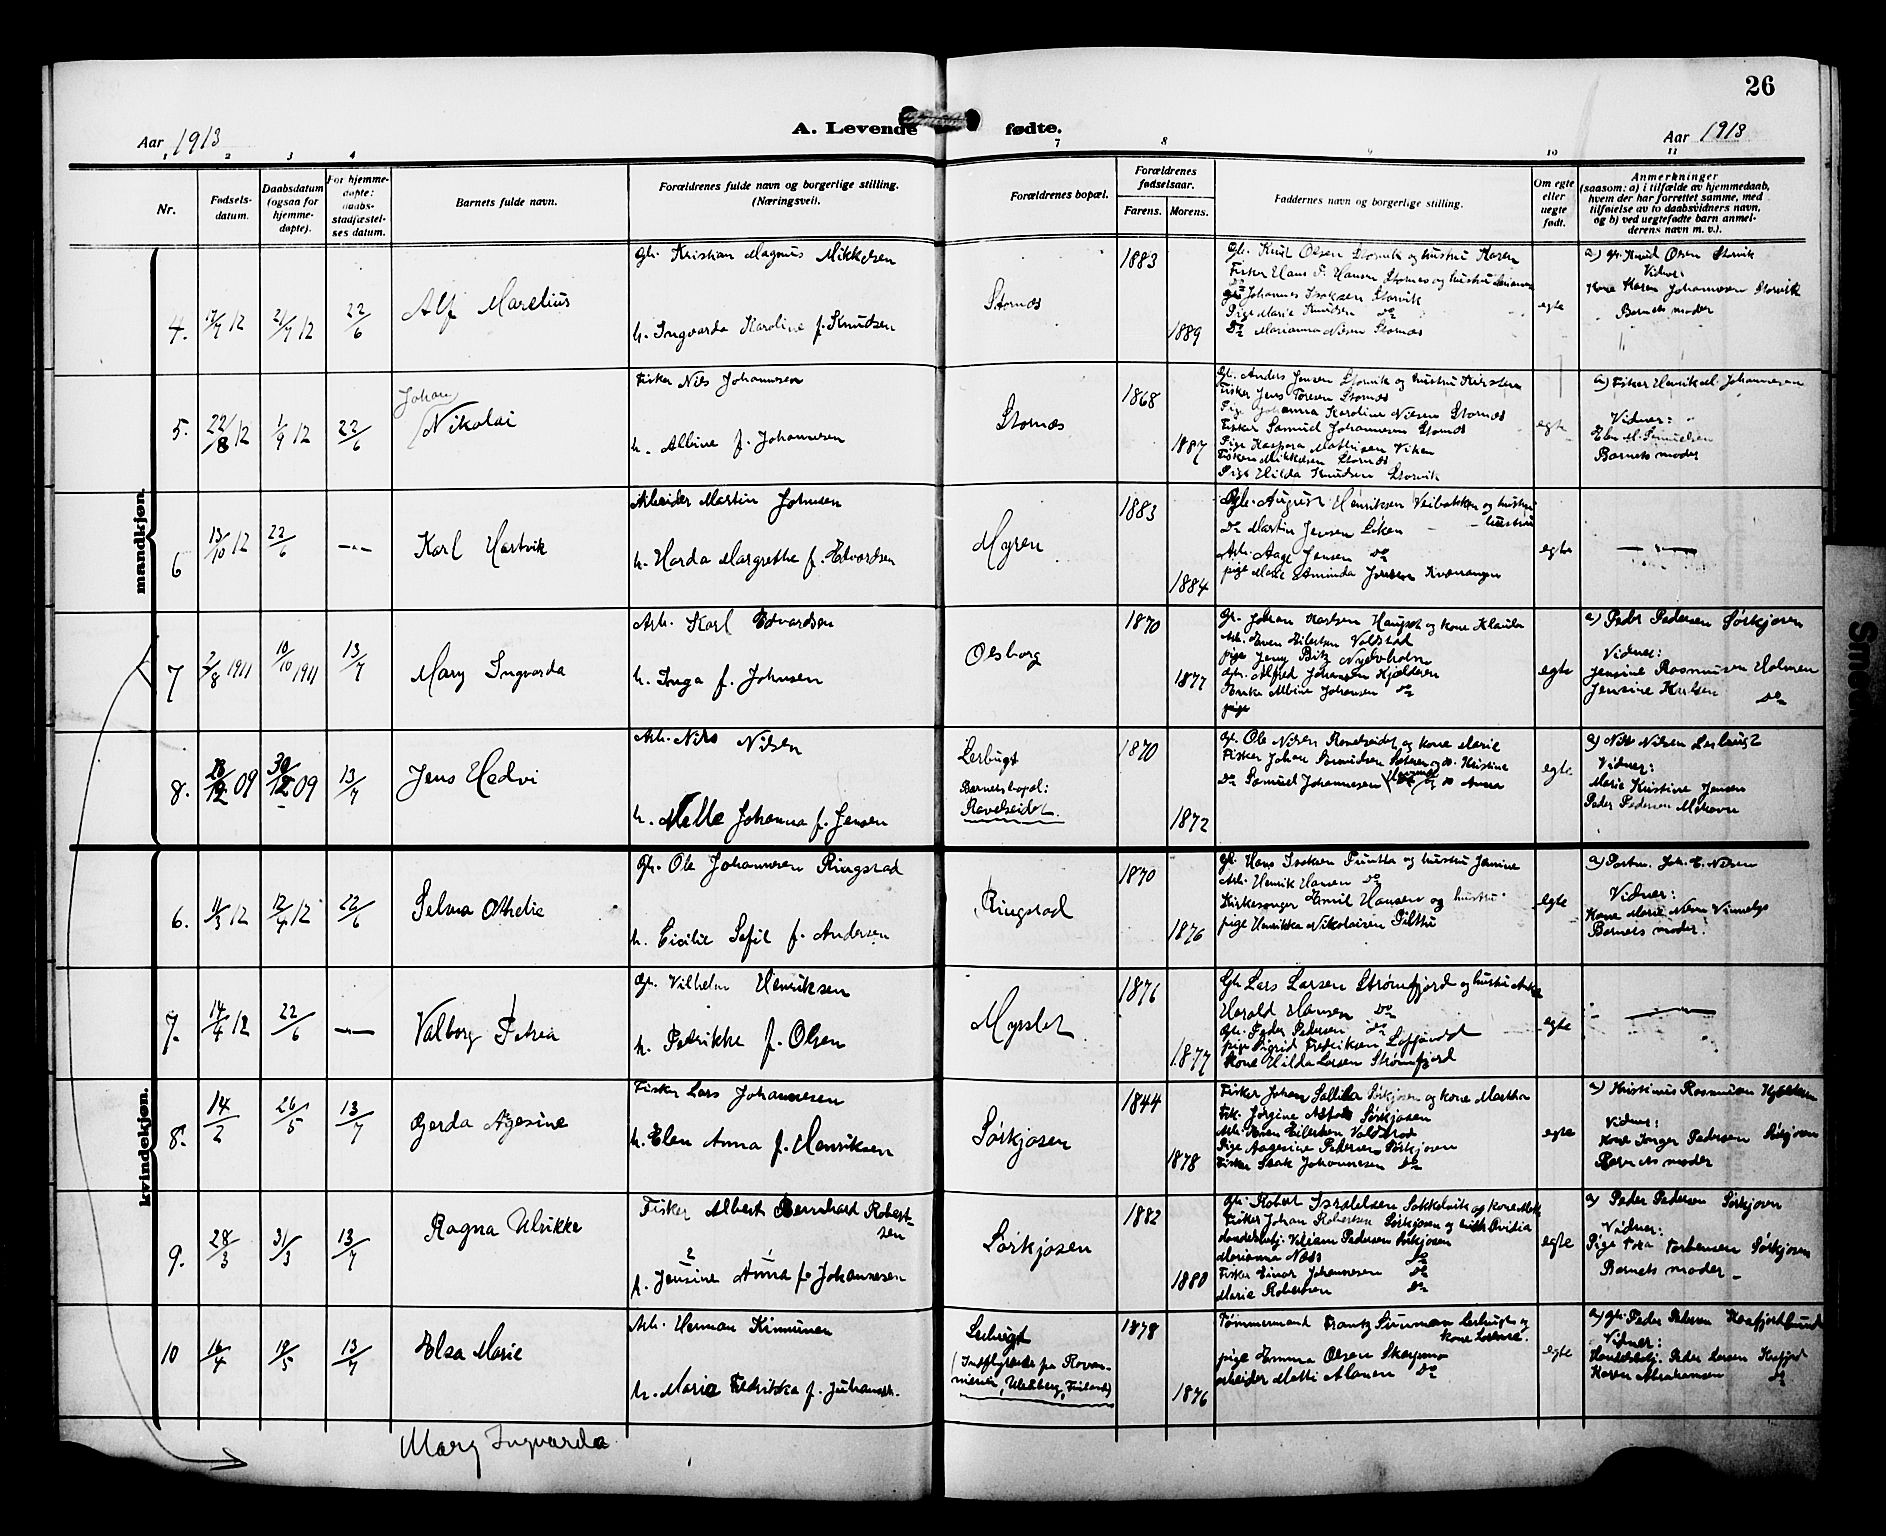 26
Aar 1913
A. Levende fødte.
Aar 1913
1 2 3 4 7 8 9 10 11
Nr.
Fødsels-
datum.
Daabsdatum
(ogsaa for
hjemme-
døpte).
For hjemme-
døpte:
daabs-
stadfæstel-
ses datum.
Barnets fulde navn.
Forældrenes fulde navn og borgerlige stilling.
(Næringsvei).
Forældrenes bopæl.
Forældrenes
fødselsaar.
Farens. Morens.
Faddernes navn og borgerlige stilling.
Om egte
eller
uegte
født.
Anmerkninger
(saasom: a) i tilfælde av hjemmedaab,
hvem der har forrettet samme, med
tilføielse av to daabsvidners navn,
og b) ved uegtefødte barn anmel-
derens navn m. v.).
mandkjøn.
4. 17/7 12 21/7 12 22/6
Alf Marelius
Gbr. Kristian Magnus Mikkelsen
h. Ingvarda Karoline f. Knudsen
Stornæs
1883
1889
Gbr. Knut Olsen Storvik og hustru Karen
Fisker Hans P. Hansen Stornes og hustru
Johannes Isaksen Storvik
Pige Marie Knudsen do
do Marianna Nilsen Stornæs
egte
a) gbr. Knud Olsen Storvik
Vidner:
Kone Karen Johannesen Storvik
Barnets moder
5. 22/8 12 1/9 12 22/6
Johan
Nikolai
Fisker Nils Johannesen
h. Albine f. Johannesen
Stornæs
1868
1887
Gbr. Anders Jensen Storvik og hustru Kirsten
Fisker Jens Toresen Stornæs
Pige Johanna Karoline Nilsen Stornæs
Fisker Samuel Johannesen Stornæs
Pige Kaspara Mattisen Viken
Fisker Mikkelsen Stornæs
Pige Hilda Knudsen Storvik
egte
a) Fisker Henrik M. Johannesen
Vidner:
Elen M. Samuelsen
Barnets moder
6 13/10 12 22/6 -"-
Karl Hartvik
Arbeider Martin Johnsen
h. Harda Margrethe f. Edvardsen
Myren
1883
1884
Gbr. August Henriksen Veibakken og hustru
do Martin Jensen Løken - - hustru
Arb. Aage Jensen do
pige Marie Aminda Jensen Kvænangen
egte
-"-
7 2/8 1911 10/10 1911 13/7
Mary Ingvarda
Arb. Karl Edvardsen
h. Inga f. Johnsen
Olsborg
1870
1877
Gr. Johan Karlsen Haugset og kone Klauda
Arb. Even Eilertsen Valdstad
pige Jenny Bitz Nyholmen
Gbr. Alfred Johansen Kjælderen
Enke Albine Johansen do
pige
egte
a) Peder Pedersen Sørkjosen
Vidner:
Jensine Rasmussen Holmen
Jensine Karlsen do
8. 28/12 09 30/12 09 13/7
Jens Hedvi
Arb. Nils Nilsen
h. Malla Johanna f. Jensen
Lerbugt
Barnets bopæl:
Ravelseidet.
1870
1872
Gr. Ole Nilsen Ravelseidet og kone Marie
Fisker Johan og do Kristine
do Samuel Johannesen og do Anna
egte
a) Nils Nilsen Lerbugt
Vidner:
Marie Kristine Jensen
Peder Pedersen
kvindekjøn.
6. 11/3 12 12/4 12 22/6
Selma Othelie
Gbr. Ole Johannesen Ringstad
h. Cicilie Sofie f. Andersen
Ringstad
1870
1876
Gr. Hans Isaksen og hustru Jensine
Arb. Henrik Hansen do
Kirkesanger Emil Hansen og hustru
pige Henrikka Nikolaisen
egte
a) Portner Joh. E. Nilsen
Vidner:
Kone Marie Nilsen Vinnelys
Barnets moder.
7. 14/4 12 22/6 -"-
Valborg Petrea
Gr. Vilhelm Henriksen
h. Petrikke f. Olsen
Myrslet
1876
1877
Gbr. Lars Larsen Strømfjord og hustru Anna
Harald Hansen do
Gbr. Peder Pedersen do
pige Sigrid Fredriksen
Kone Hilda Larsen Strømfjord
egte
-"-
8. 14/2 26/5 13/7
Gerda Agesine
Fisker Lars Johannesen
h. Elen Anna f. Henriksen
Sørkjosen
1844
1878
Fisker Johan Sallila Sørkjosen og kone Martha
Frk. Jørgine Sørkjosen
Arb. Even Eilertsen Valdstad
Pige Aagesine Pedersen Sørkjosen
Fisker Isak Johannesen do
egte
a) Kristinus Rasmussen Kjælderen
Vidner:
Kone Inger Pedersen Sørkjosen
Barnets moder
9. 28/3 31/3 13/7
Ragna Ulrikke
Fisker Albert Bernhard Robert-
sen
2 1
h. Jensine Anna f. Johannesen
Sørkjosen
1882
1880
Gbr. Robert Israelsen Sokkelvik og kone
Fisker Johan Robertsen Sørkjosen og
Handelsbetj. Viliam Pedersen Sørkjosen
Marianna Næss do
Fisker Einar Johannesen do
Marie Robertsen do
egte
a) Peder Pedersen Sørkjosen
Vidner:
Pige Tora Torbensen Sørkjosen
Barnets moder -
10 16/4 19/5 13/7
Elsa Marie
Arb. Herman Kinnunen
h. Maria Fredrikka f. Juhansdt.
Lerbugt
(Indflytende fra Rovan-
niemi, Uleåborg, Finland)
1878
1876
Tømmermand Frantz Lerbugt og
kone Lovise.
pige Emma Olsen
arbeider Matti Alanen do
egte
a) gbr. Peder Petersen Kaafjordbund
Vidner:
Handelsbetj. Peder Larsen Kaafjord
Karen Abrahamsen do
Mary Ingvarda